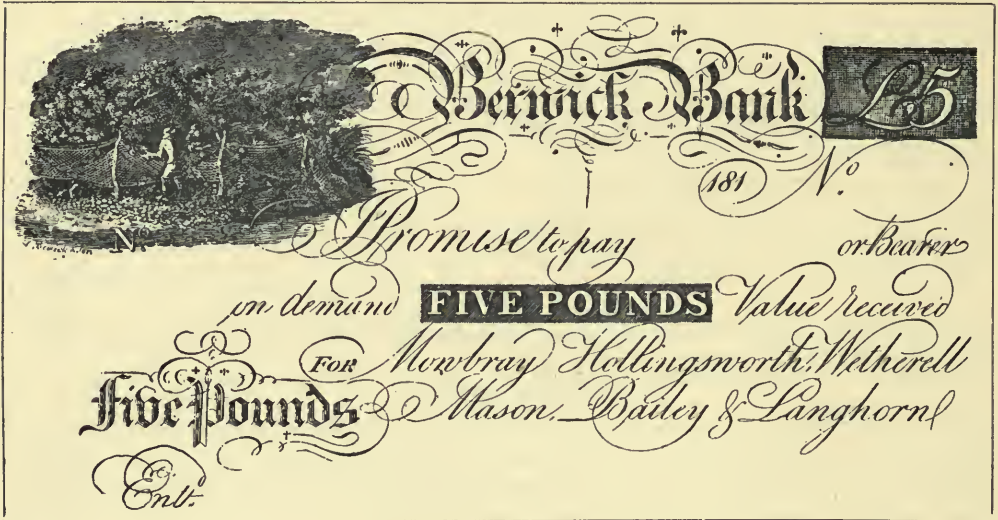 Berwick Bank £5
181 No.
No.
I Promise to pay or Bearer
on demand FIVE POUNDS Value received
For Mowbray Hollingsworth, Wetherell
Five Pounds Mason, Bailey & Langhorn
Entd.